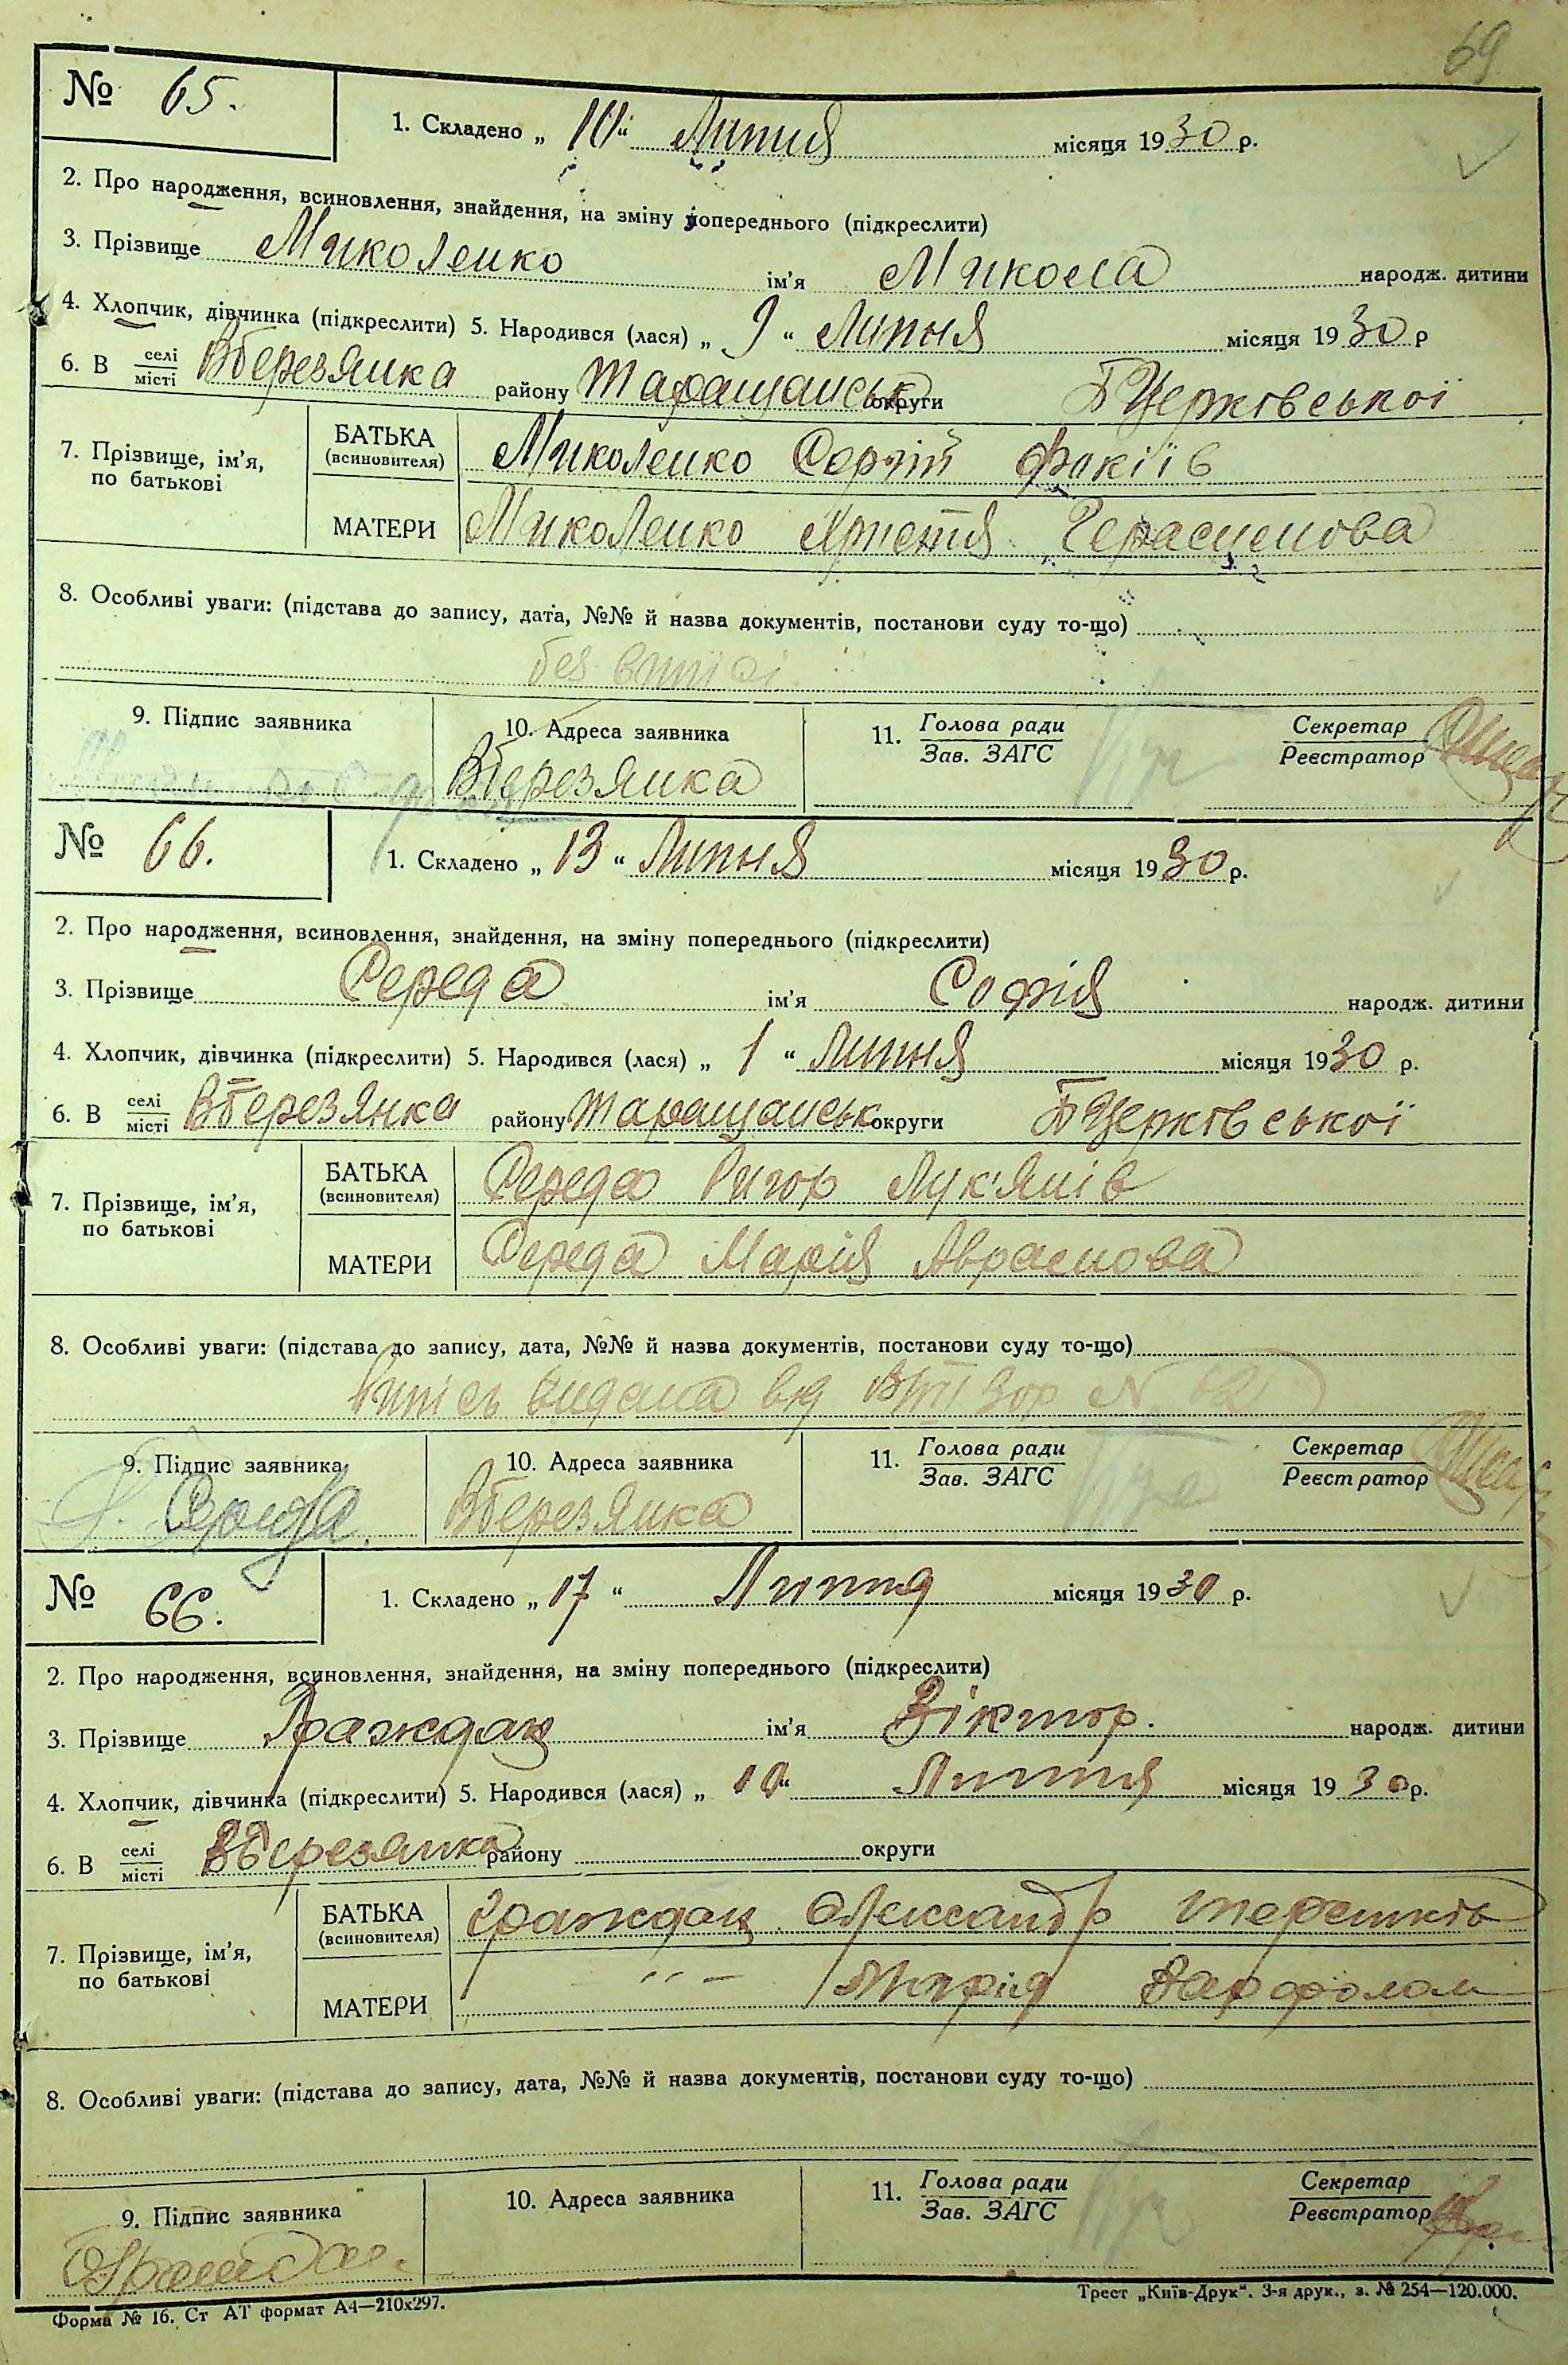 69
№ 65.
1. Складено „ 10 “ Липня місяця 1930 р.
2. Про народження, всиновлення, знайдення, на зміну попереднього (підкреслити)
3. Прізвище Миколенко ім’я Микола народж. дитини
4. Хлопчик, дівчинка (підкреслити) 5. Народився (лася) „ 9 “ Липня місяця 1930 р
6. В селі/місті ВБерезянка району Таращанськ округи БЦерківської
7. Прізвище, ім’я, по батькові
БАТЬКА (всиновителя) Миколенко Сергій Фокіїв
МАТЕРИ Миколенко Христя Герасимова
8. Особливі уваги: (підстава до запису, дата, №№ й назва документів, постанови суду то-що)
без
9. Підпис заявника
10. Адреса заявника
11. Голова ради / Зав. ЗАГС
Секретар / Реєстратор
ВБерезянка
№ 66.
1. Складено „ 13 “ Липня місяця 1930 р.
2. Про народження, всиновлення, знайдення, на зміну попереднього (підкреслити)
3. Прізвище Середа ім’я Софія народж. дитини
4. Хлопчик, дівчинка (підкреслити) 5. Народився (лася) „ 1 “ Липня місяця 1930 р.
6. В селі/місті ВБерезянка району Таращанськ округи БЦерківської
7. Прізвище, ім’я, по батькові
БАТЬКА (всиновителя) Середа Григор Лук’янів
МАТЕРИ Середа Марія Аврамова
8. Особливі уваги: (підстава до запису, дата, №№ й назва документів, постанови суду то-що)
Випісь видана від 13/VII 30р №
9. Підпис заявника
10. Адреса заявника
11. Голова ради / Зав. ЗАГС
Секретар / Реєстратор
Середа ВБерезянка
№ 66.
1. Складено „ 17 “ Липня місяця 1930 р.
2. Про народження, всиновлення, знайдення, на зміну попереднього (підкреслити)
3. Прізвище Граждан ім’я Віктор. народж. дитини
4. Хлопчик, дівчинка (підкреслити) 5. Народився (лася) „ 10 “ Липня місяця 1930 р.
6. В селі/місті ВБерезянка району округи
7. Прізвище, ім’я, по батькові
БАТЬКА (всиновителя) Граждан Олександр
МАТЕРИ – " – Марія Варфолом
8. Особливі уваги: (підстава до запису, дата, №№ й назва документів, постанови суду то-що)
9. Підпис заявника
10. Адреса заявника
11. Голова ради / Зав. ЗАГС
Секретар / Реєстратор
Форма № 16. Ст АТ формат А4—210х297.
Трест „Київ-Друк“. 3-я друк., з. № 254—120.000.